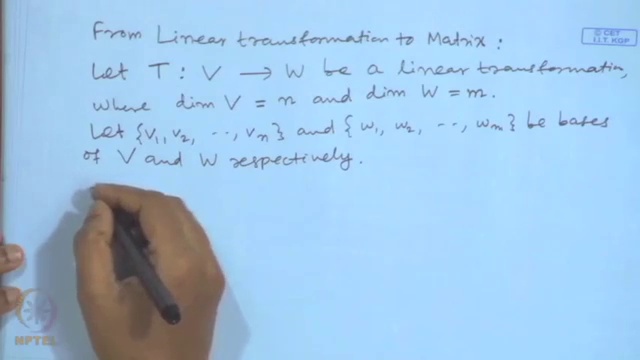 From Linear transformation to Matrix:
Let T: V → W be a linear transformation,
where dim V = n and dim W = m.
Let {v₁, v₂, ..., vₙ} and {w₁, w₂, ..., wₘ} be bases
of V and W respectively.
© CET
I.I.T. KGP
NPTEL